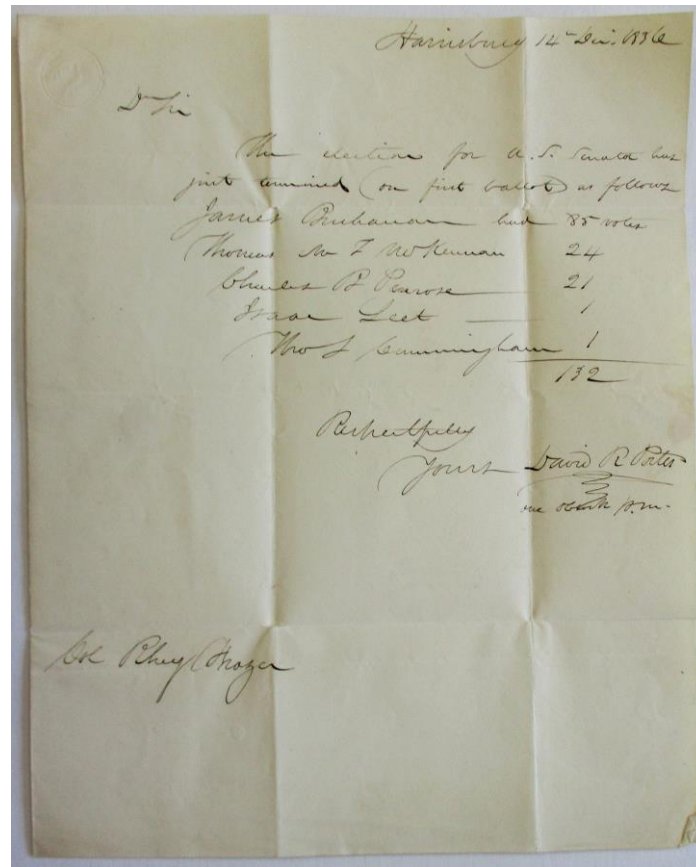 Harrisburg 14th Dec. 1836
Dr Sir
The election for U.S. Senator has
just termined (on first ballot) as follows
James Buchanan had 85 votes
Thomas M T McKennan 24
Charles B Penrose 21
Isaac Leet 1
Thos S Cunningham 1
132
Respectfully
Yours David R Porter
one oclock p.m.
Col Frazer